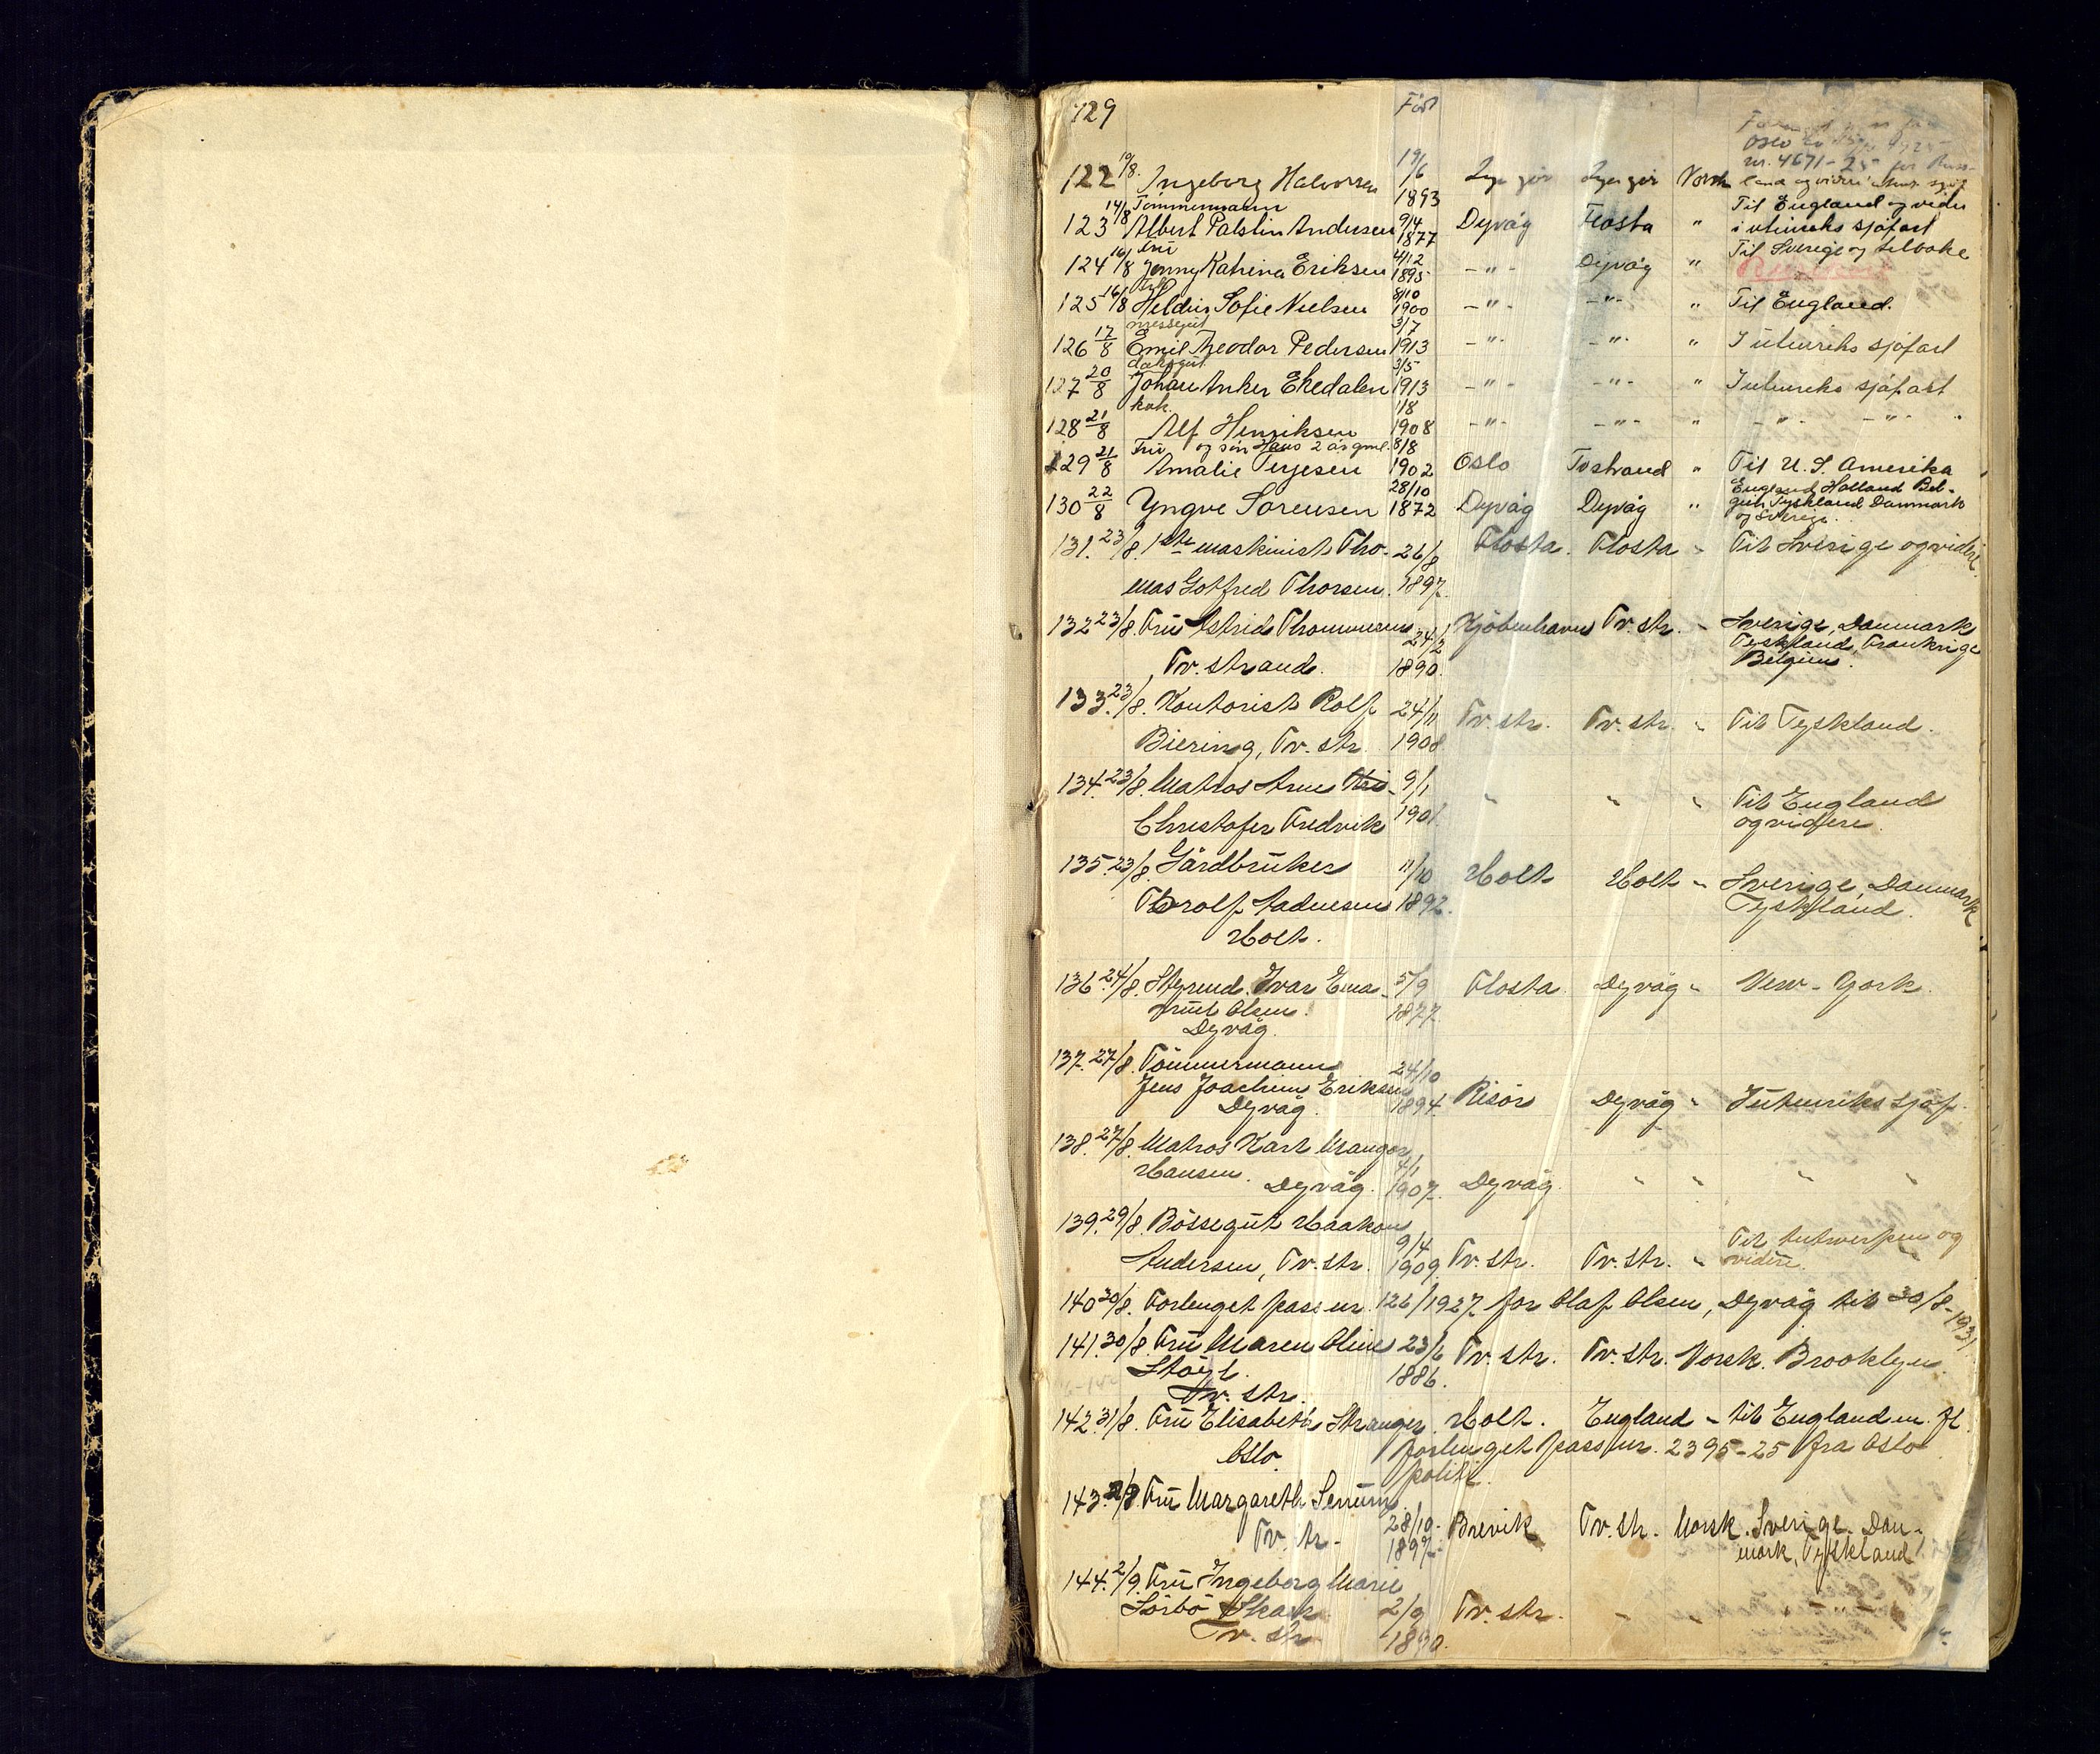 129 Född
Oslo
nr. 4671-25 for Russ-
122 19/8. Ingeborg Halvorsen 19/6 1893 Lyngør Lyngør Norsk land og videre
14/8 Tømmermann Til England og videre
123 Albert Palstin Andersen 9/4 1877 Dyvåg Flosta " i utenriks sjøfart
16/8 Fru Til Sverige og tilbake
124 Jenny Katrina Eriksen 4/12 1895 -"- Dyvåg "
125 16/8 Heldine Sofie Nielsen 8/10 1900 -"- -"- " Til England.
messegut
126 17/8 Emil Theodor Pedersen 3/7 1913 -"- -"- " I utenriks sjøfart
dæksgut
127 20/8 Johan Anker Ekedalen 3/5 1913 -"- -"- " I utenriks sjøfart
kok.
128 21/8 Alf Henriksen 1/8 1908 -"- -"- " -"- -"-
Fru og søn Hans 2 år gml.
129 21/8 Amalie Terjesen 8/8 1902 Oslo Tvstrand " Til U. S. Amerika
England, Holland Bel-
130 22/8 Yngve Sørensen 28/10 1872 Dyvåg Dyvåg " gien Tyskland Danmark
og Sverige.
131. 23/8. 1ste maskinist Tho- 26/8 Flosta. Flosta " Til Sverige og videre.
mas Gotfred Thorsen. 1897.
132 23/8. Fru Astrid Thommesen 24/2 Kjøbenhavn Tv. str. " Sverige, Danmark
Tyskland, Frankrige
Tv. strand. 1890. Belgien.
133. 23/8. Kontorist Rolf 24/11 Tv. str. Tv. str. " Til Tyskland.
Biering, Tv. str. 1908
134. 23/8. Matros Arne Kri- 9/1 " " " Til England
Christofer Fredvik 1901. og videre.
135. 23/8. Gårdbruker 11/10 Holt Holt " Sverige, Danmark
Thorolf Aadnesen 1892. Tyskland.
Holt.
136. 24/8. Styrmd. Ivar Ema- 5/9 Flosta Dyvåg " New-York.
nuel Olsen. 1877.
Dyvåg.
137. 27/8. Tømmermann 24/10
Jens Joachim Eriksen 1894. Risør Dyvåg " I utenriks sjøf.
Dyvåg.
138. 27/8. Matros Karl Mangor 4/1
Hansen. Dyvåg. 1907. Dyvåg. " " " "
139. 29/8. Bössegut Haakon 9/4 Til Antwerpen og
Andersen, Tv. str. 1909. Tv. str. Tv. str. " videre.
140 30/8. Forlenget pass nr. 126/1927 for Olaf Olsen, Dyvåg til 30/8-1931
141. 30/8. Fru Maren Oline 23/6 Tv. str. Tv. str. Norsk. Brooklyn.
Støyl. 1886.
Tv. str.
142. 31/8. Fru Elisabeth Stranger. Holt. England " til England m. fl.
Oslo. forlenget pass nr. 2395-25 fra Oslo
politi.
143. 2/9. Fru Margareth Serrum
Tv. str. 28/10- 1897. Brevik Tv. str. Norsk. Sverige. Dan-
mark, Tyskland
144. 2/9. Fru Ingeborg Marie
Sørbø Skak 2/9 Tv. str. " " " -"-
Tv. str. 1890.